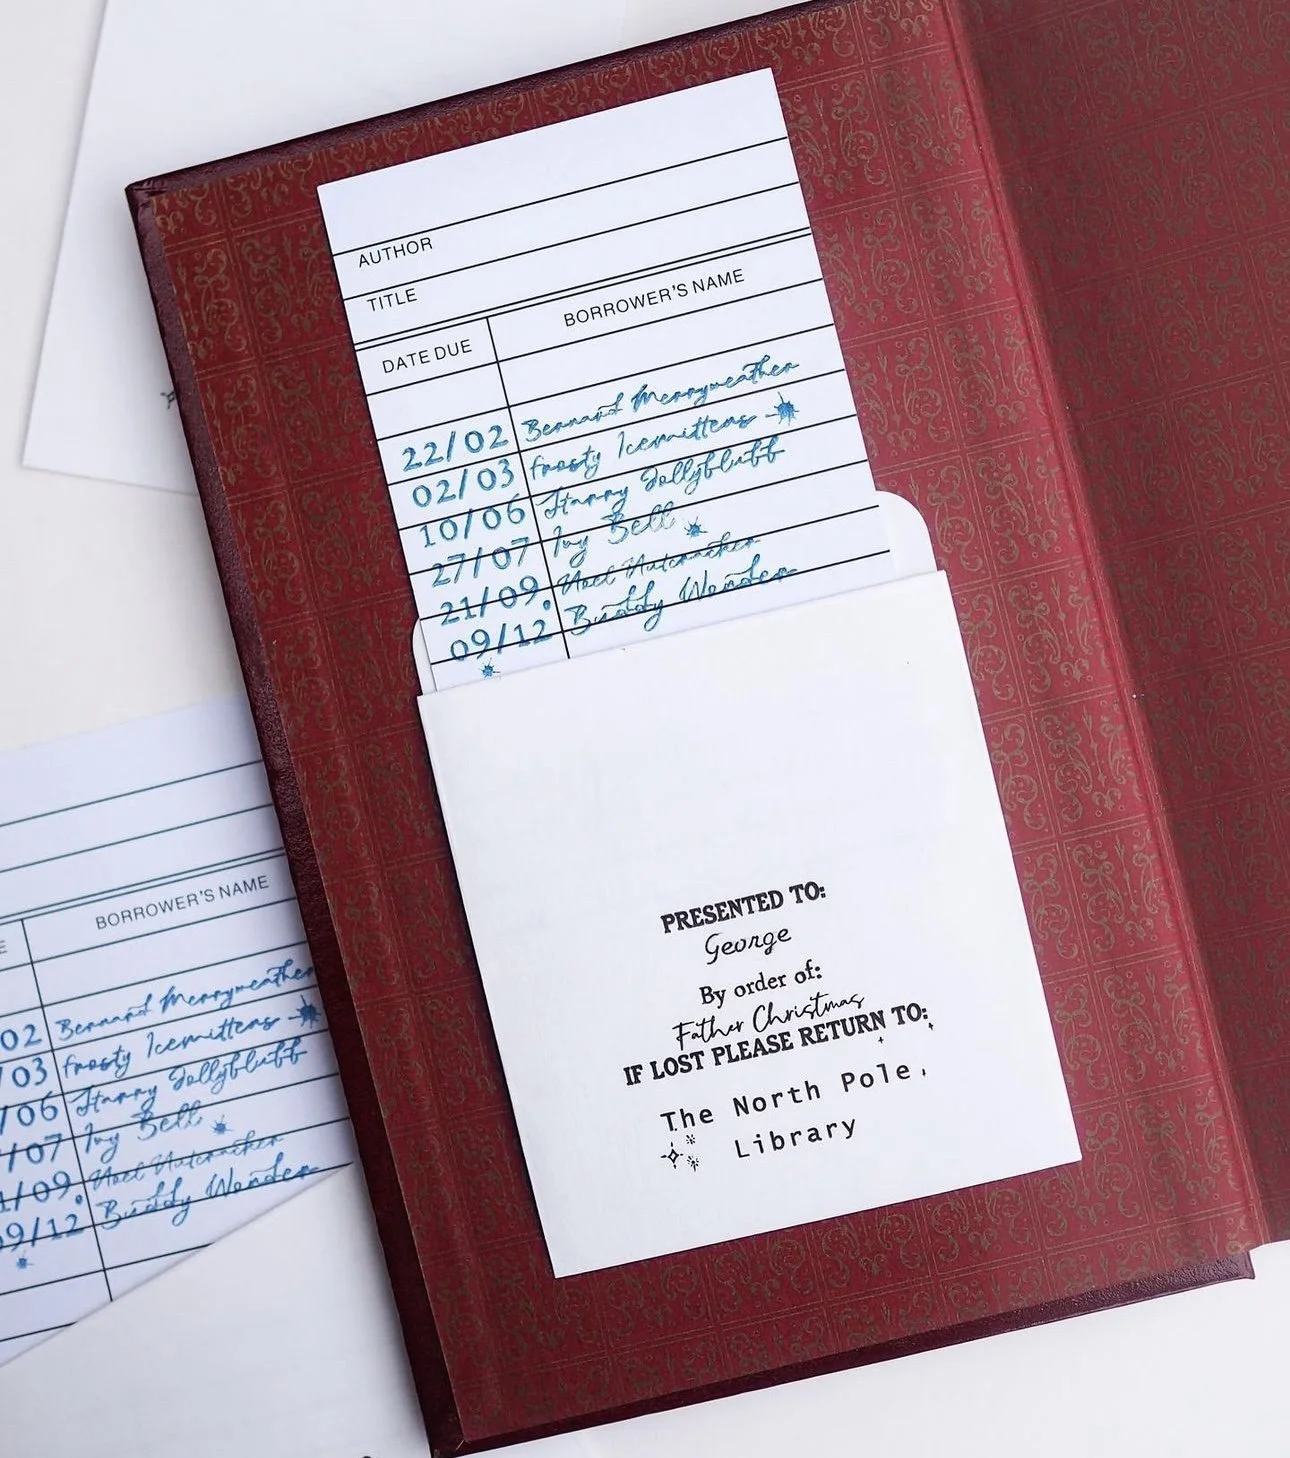 AUTHOR
TITLE
DATE DUE BORROWER'S NAME
22/02 Bernard Merryweather
02/03 Frosty Icemittens
10/06 Starry Jollyfluff
27/07 Ivy Bell
21/09 Noel Nutcracker
09/12 Buddy Wonder
PRESENTED TO:
George
By order of:
Father Christmas
IF LOST PLEASE RETURN TO:
The North Pole,
Library
E BORROWER'S NAME
02 Bernard Merryweather
/03 Frosty Icemittens
/06 Starry Jollyfluff
/07 Ivy Bell
1/09 Noel Nutcracker
09/12 Buddy Wonder